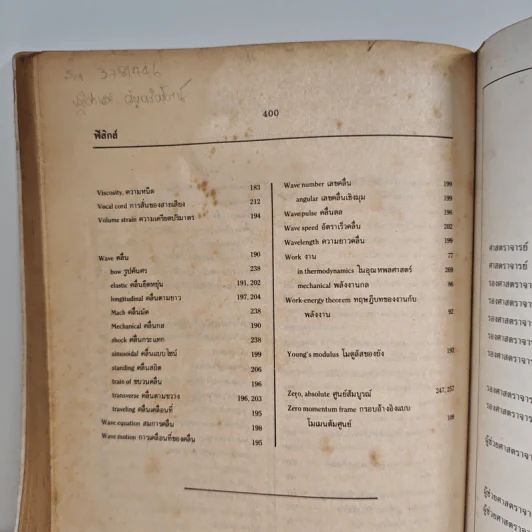 400
ฟิสิกส์
Viscosity, ความหนืด 183
Vocal cord การสั่นของสายเสียง 212
Volume strain ความเครียดปริมาตร 194
Wave คลื่น 190
bow รูปคันศร 238
elastic คลื่นยืดหยุ่น 191, 202
longitudinal คลื่นตามยาว 197, 204
Mach คลื่นมัค 238
Mechanical คลื่นกล 190
shock คลื่นกระแทก 238
sinusoidal คลื่นแบบไซน์ 199
standing คลื่นสถิต 206
train of ขบวนคลื่น 196
transverse คลื่นตามขวาง 196, 203
traveling คลื่นเคลื่อนที่ 195
Wave equation สมการคลื่น 198
Wave motion การเคลื่อนที่ของคลื่น 195
Wave number เลขคลื่น 199
angular เลขคลื่นเชิงมุม 199
Wave pulse คลื่นดล 196
Wave speed อัตราเร็วคลื่น 202
Wavelength ความยาวคลื่น 199
Work งาน 77
in thermodynamics ในอุณหพลศาสตร์ 269
mechanical พลังงานกล 86
Work-energy theorem ทฤษฎีบทของงานกับ
พลังงาน 92
Young's modulus โมดูลัสของยัง 193
Zero, absolute ศูนย์สัมบูรณ์ 247, 257
Zero momentum frame กรอบอ้างอิงแบบ
โมเมนตัมศูนย์ 108
ศาสตราจารย์
รองศาสตราจาร
รองศาสตราจาร
รองศาสตราจาร
รองศาสตราจาร
รองศาสตราจาร
รองศาสตราจาร
รองศาสตราจาร
ผู้ช่วยศาสตราจา
ผู้ช่วยศาสตราจา
ผู้ช่วยศาสตราจา